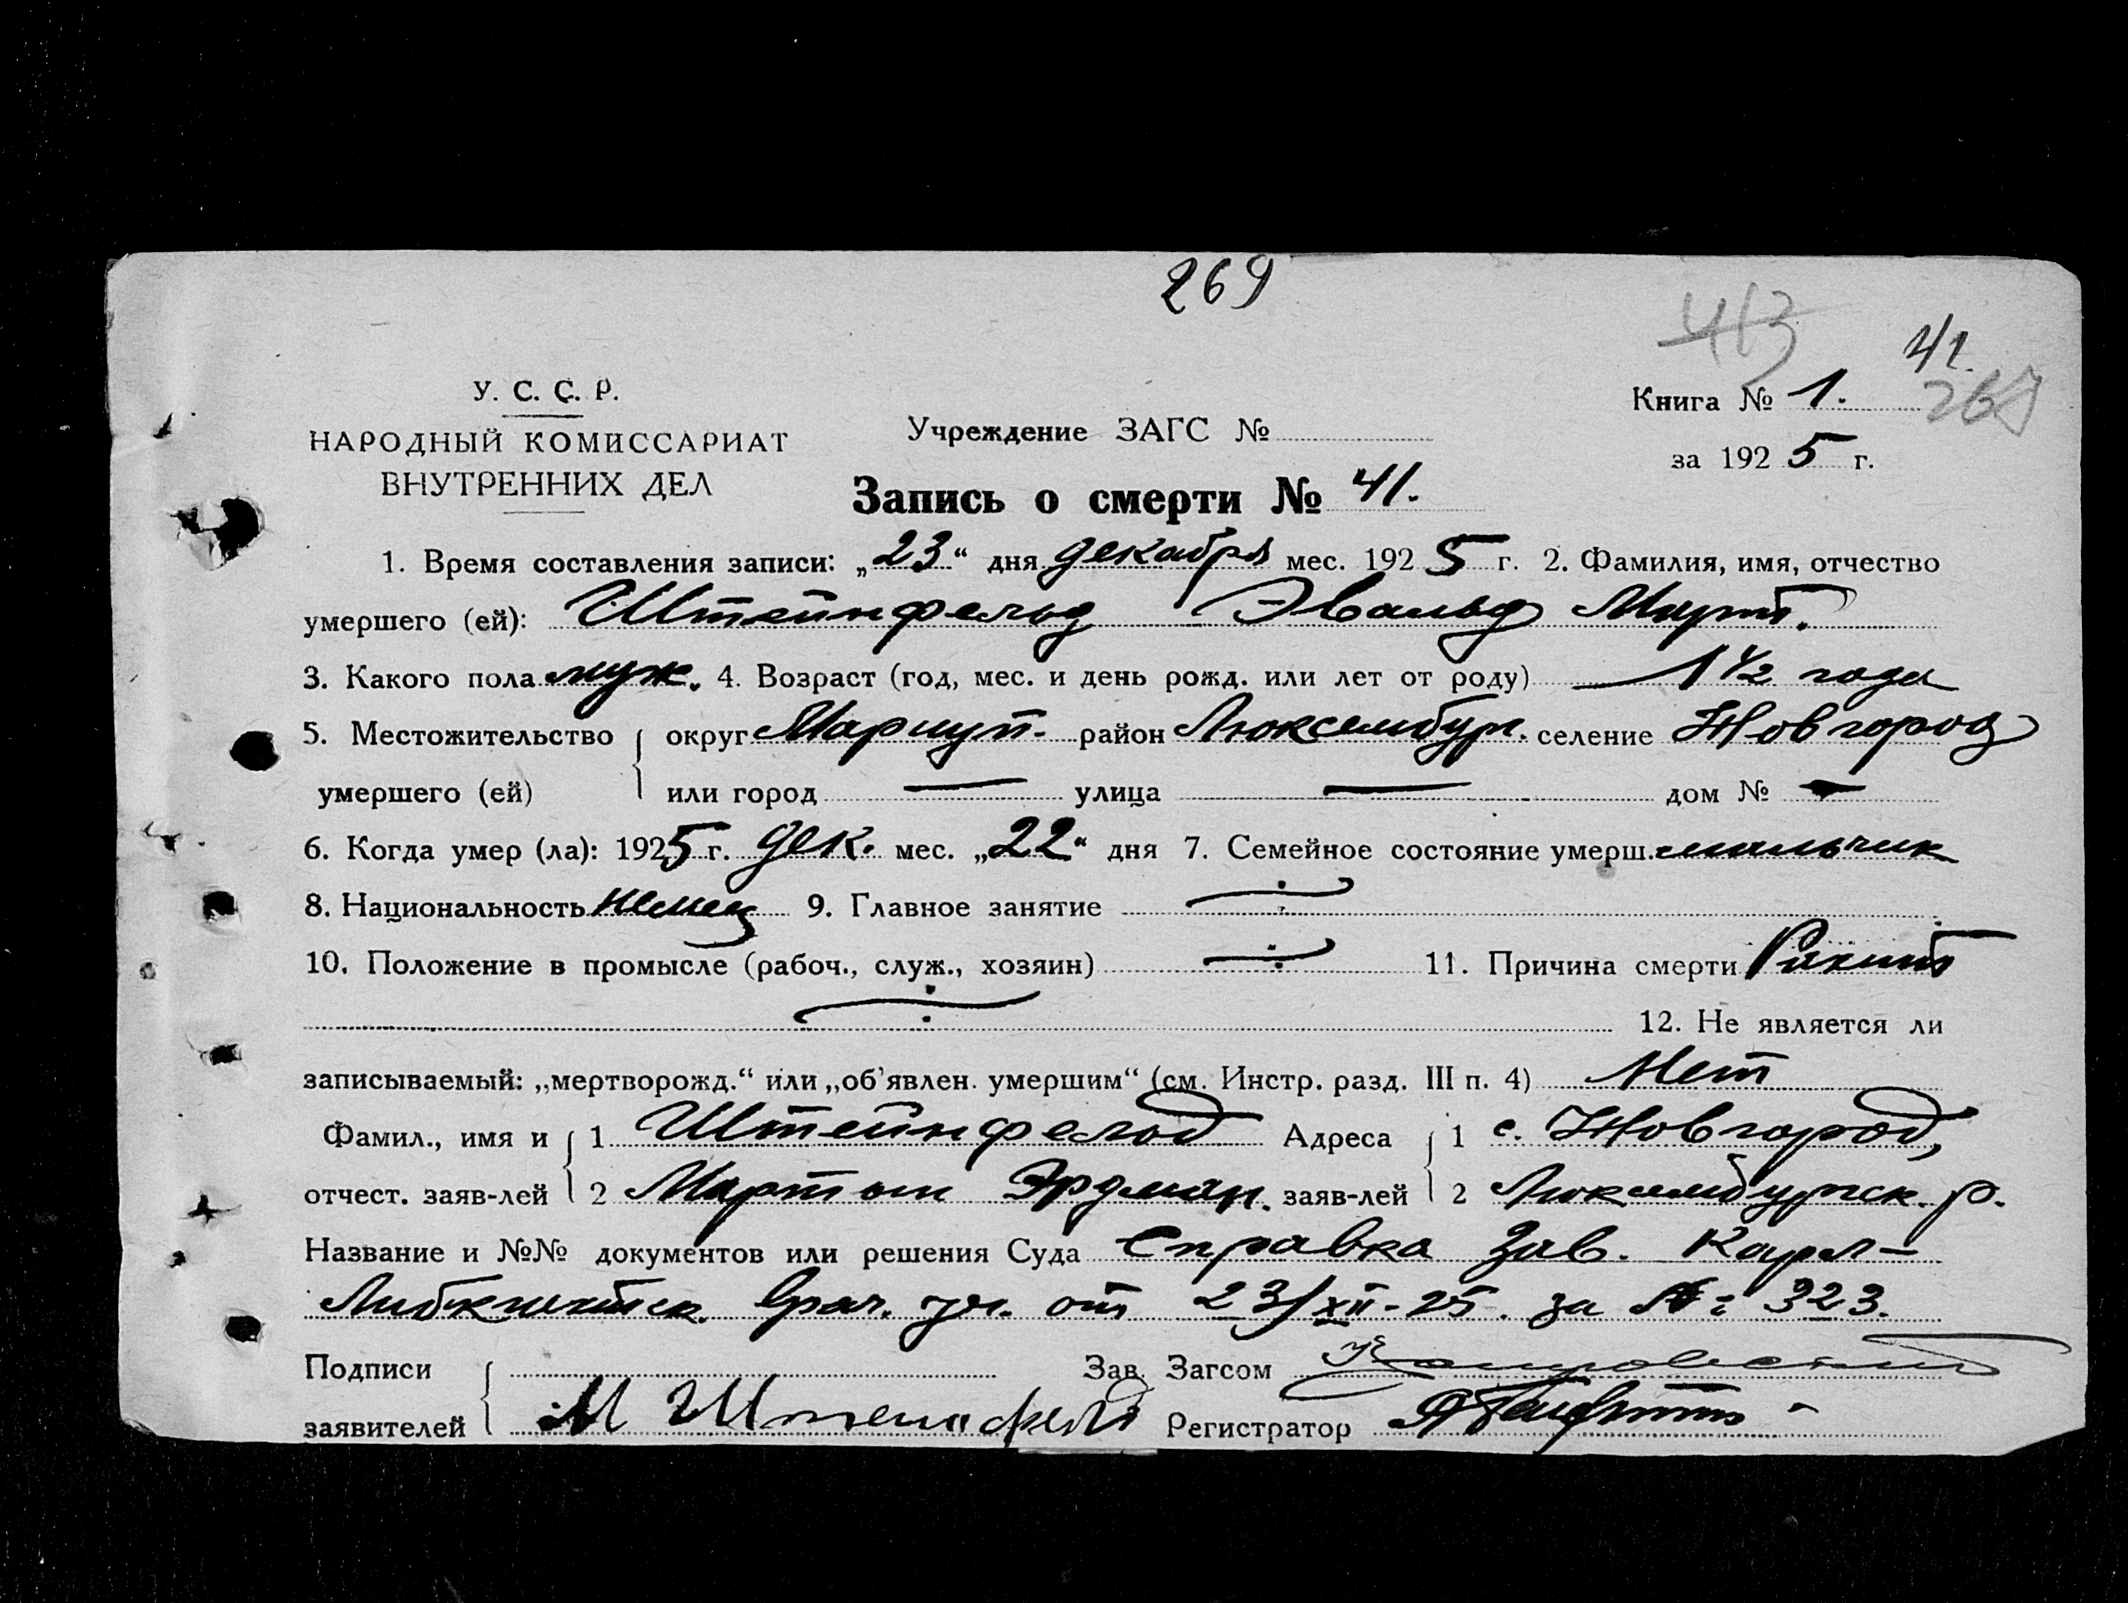 269
413
41.
У. С. С. Р.
Книга № 1. 269
НАРОДНЫЙ КОМИССАРИАТ
Учреждение ЗАГС №
за 1925 г.
ВНУТРЕННИХ ДЕЛ
Запись о смерти № 41.
1. Время составления записи: „23“ дня декабря мес. 1925 г. 2. Фамилия, имя, отчество
умершего (ей): Штейнфельд Эвальд Март.
3. Какого пола муж. 4. Возраст (год, мес. и день рожд. или лет от роду) 1 1/2 года
5. Местожительство округ Мариуп. район Люксембург. селение Новгород
умершего (ей) или город — улица — дом № —
6. Когда умер (ла): 1925 г. дек. мес. „22“ дня 7. Семейное состояние умерш. мальчик
8. Национальность немец 9. Главное занятие ÷
10. Положение в промысле (рабоч., служ., хозяин) ÷ 11. Причина смерти Рахит
÷ 12. Не является ли
записываемый: „мертворожд.“ или „об'явлен. умершим“ (см. Инстр. разд. III п. 4) Нет
Фамил., имя и 1 Штейнфельд Адреса 1 с. Новгород,
отчест. заяв-лей 2 Мартын Эрдман. заяв-лей 2 Люксембургск. р.
Название и №№ документов или решения Суда Справка Зав. Карл-
Либкнехтск. врач. уч. от 23/XII-25. за №: 323.
Подписи Зав. Загсом
заявителей М Штейнфельд Регистратор